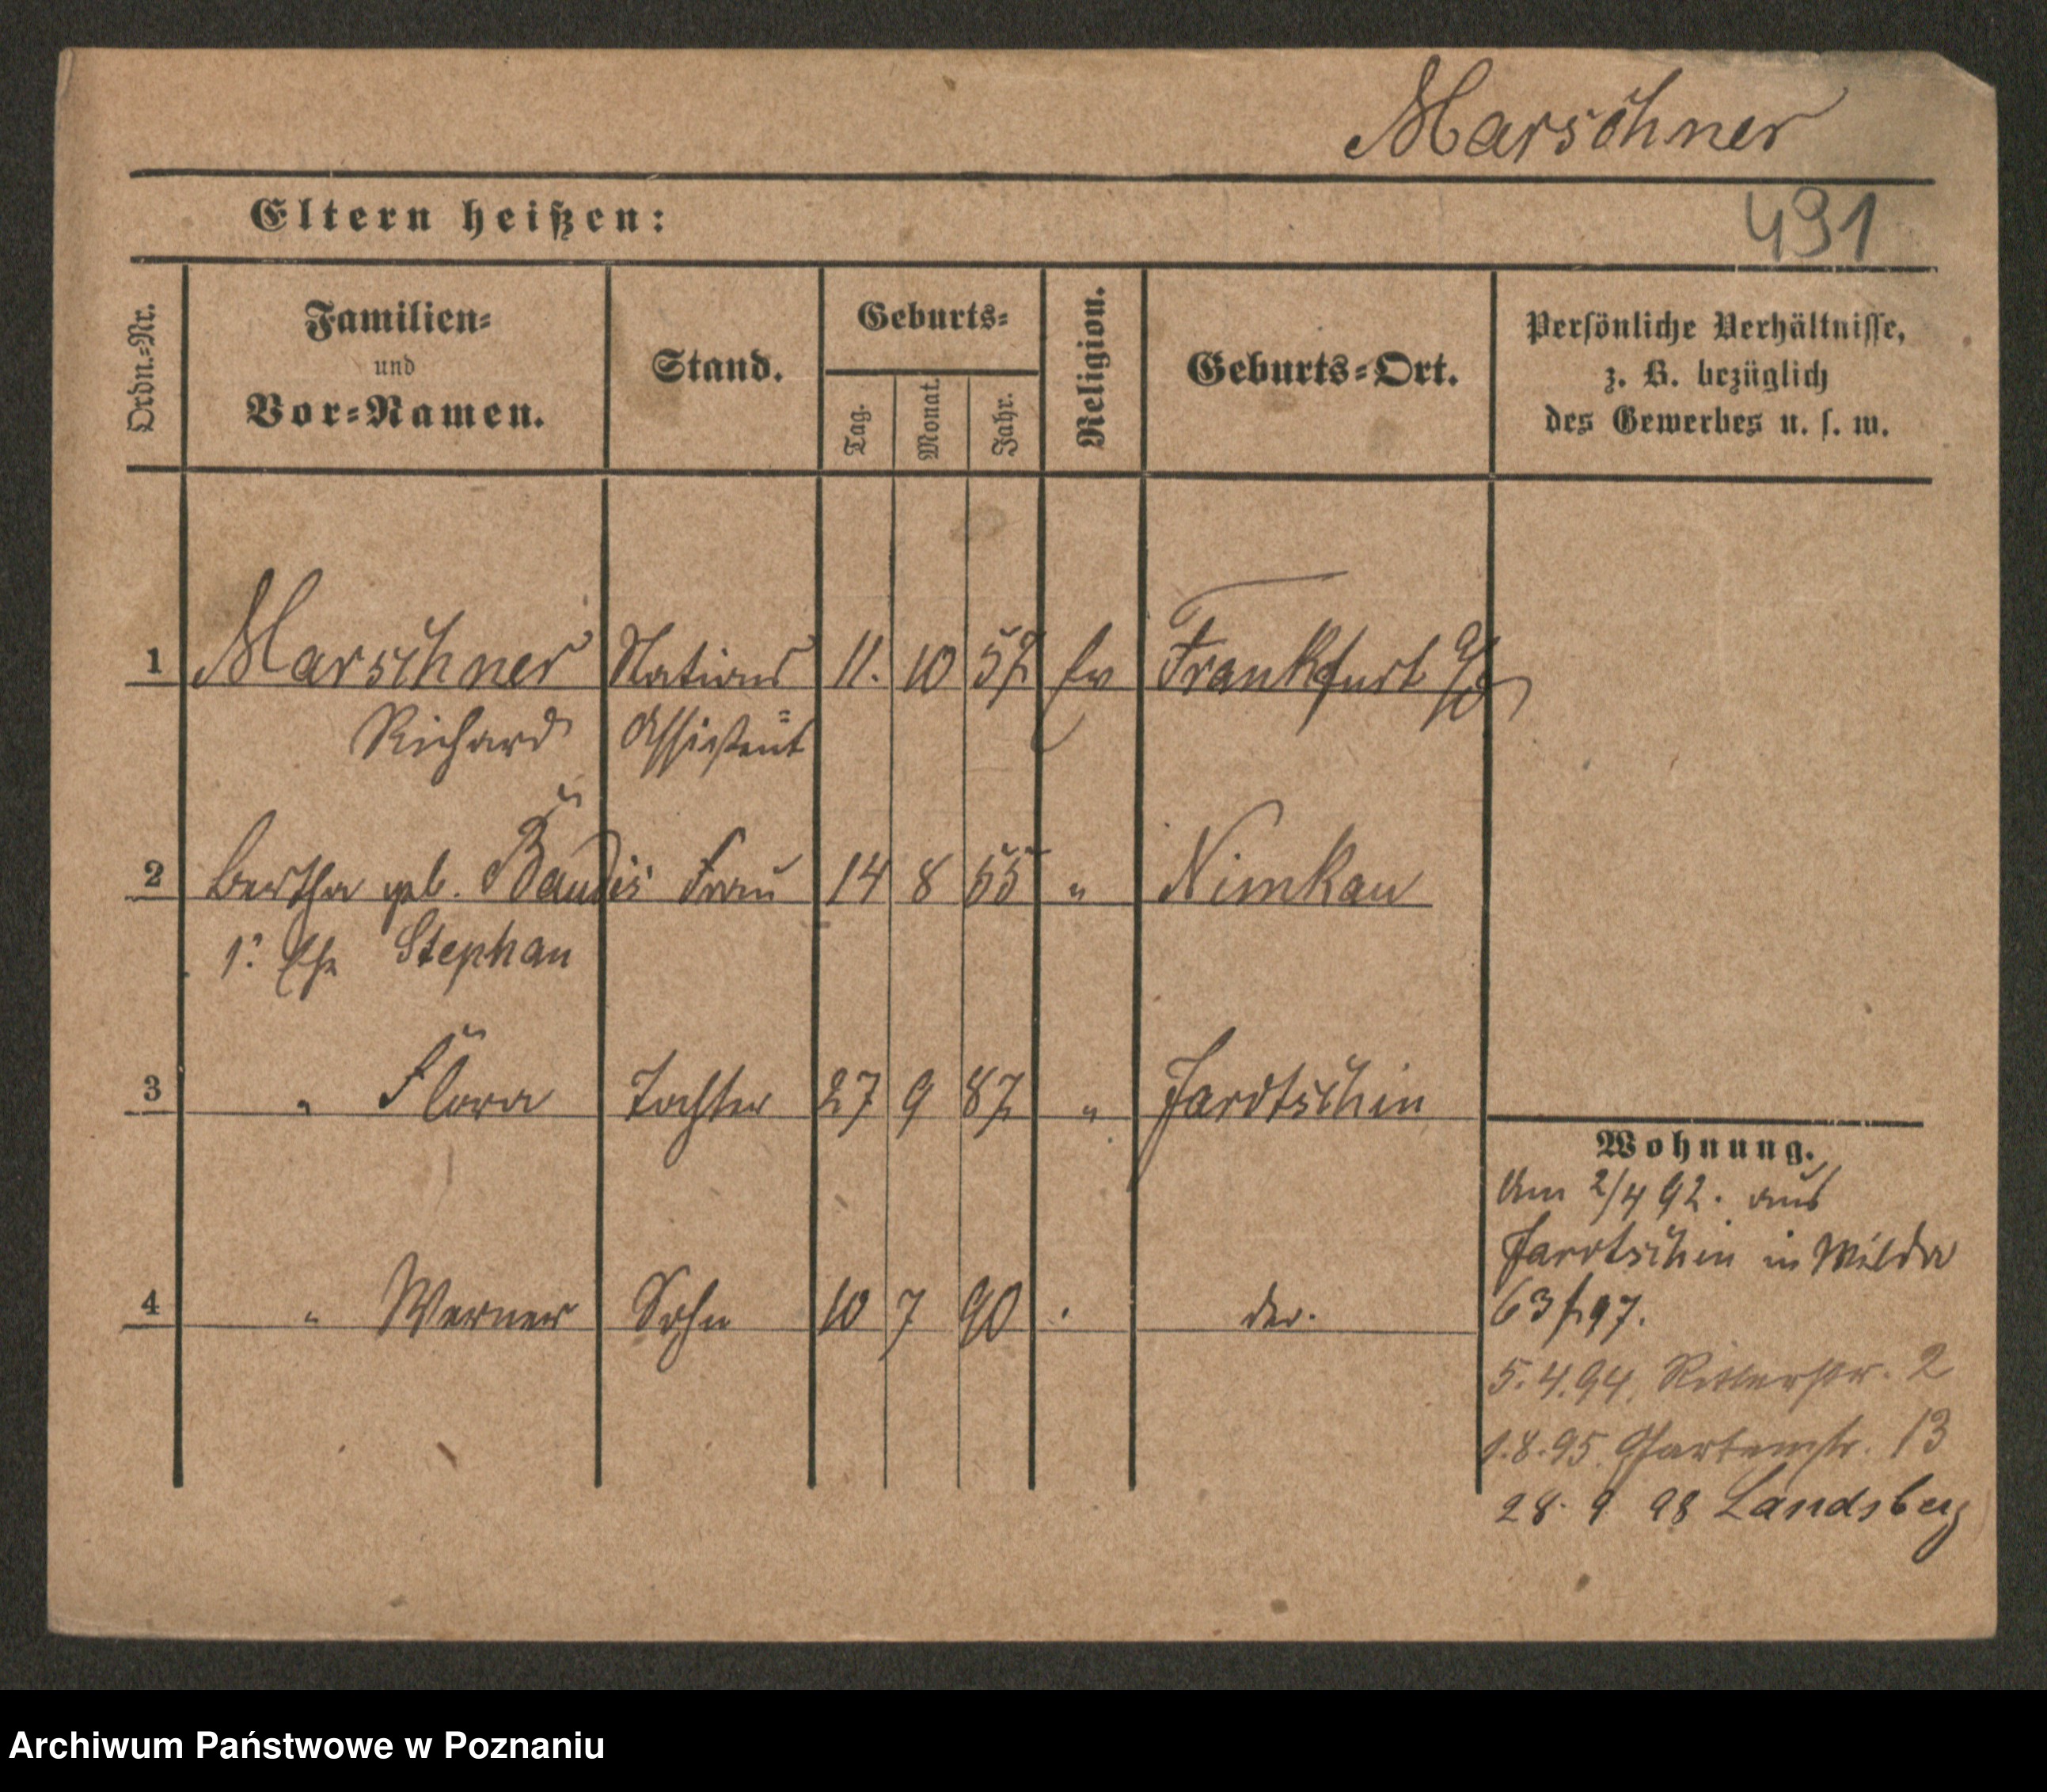 Marschner
491
Eltern heißen:
Ordn.-Nr.
Familien-
und
Vor-Namen.
Stand.
Geburts-
Tag.
Monat.
Jahr.
Religion.
Geburts-Ort.
Persönliche Verhältnisse,
z. B. bezüglich
des Gewerbes u. s. w.
1 Marschner Stations 11. 10 57 Ev Frankfurt a/O
Richard Assistent
2 Bertha geb. Baudis Frau 14 8 55 " Nimkau
1. Ehe Stephan
3 " Flora Tochter 27 9 87 " Jarotschin
4 " Werner Sohn 10 7 90 . der.
Wohnung.
Am 2/4 92. aus
Jarotschin in Wilda
63
5.4.94. Ritterstr. 2
1.8.95. Gartenstr. 13
28. 9 98 Landsberg
Archiwum Państwowe w Poznaniu